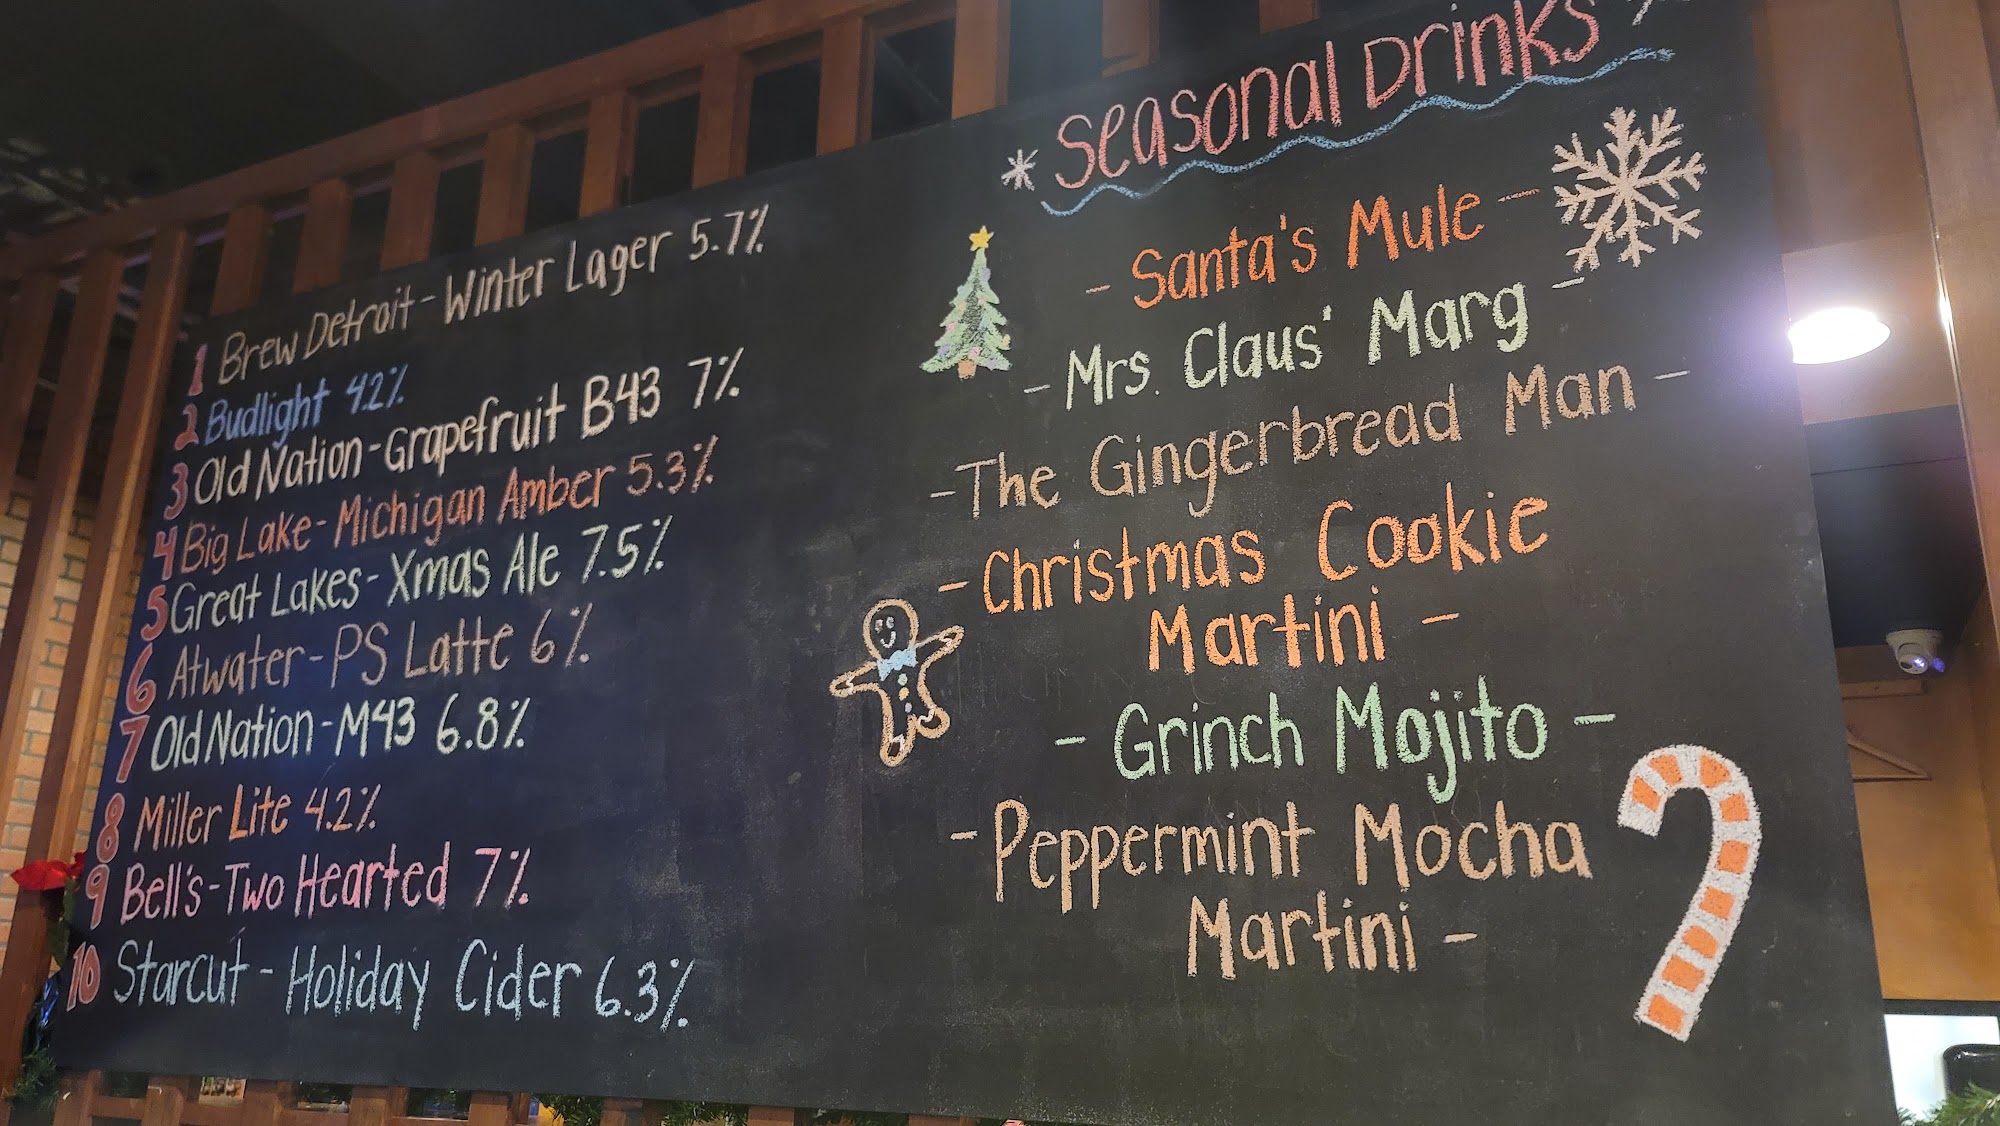 1 Brew Detroit - Winter Lager 5.7%
2 Budlight 4.2%
3 Old Nation - Grapefruit B43 7%
4 Big Lake - Michigan Amber 5.3%
5 Great Lakes - Xmas Ale 7.5%
6 Atwater - PS Latte 6%
7 Old Nation - M43 6.8%
8 Miller Lite 4.2%
9 Bell's - Two Hearted 7%
10 Starcut - Holiday Cider 6.3%
* Seasonal Drinks *
- Santa's Mule -
- Mrs. Claus' Marg -
- The Gingerbread Man -
- Christmas Cookie
Martini -
- Grinch Mojito -
- Peppermint Mocha
Martini -